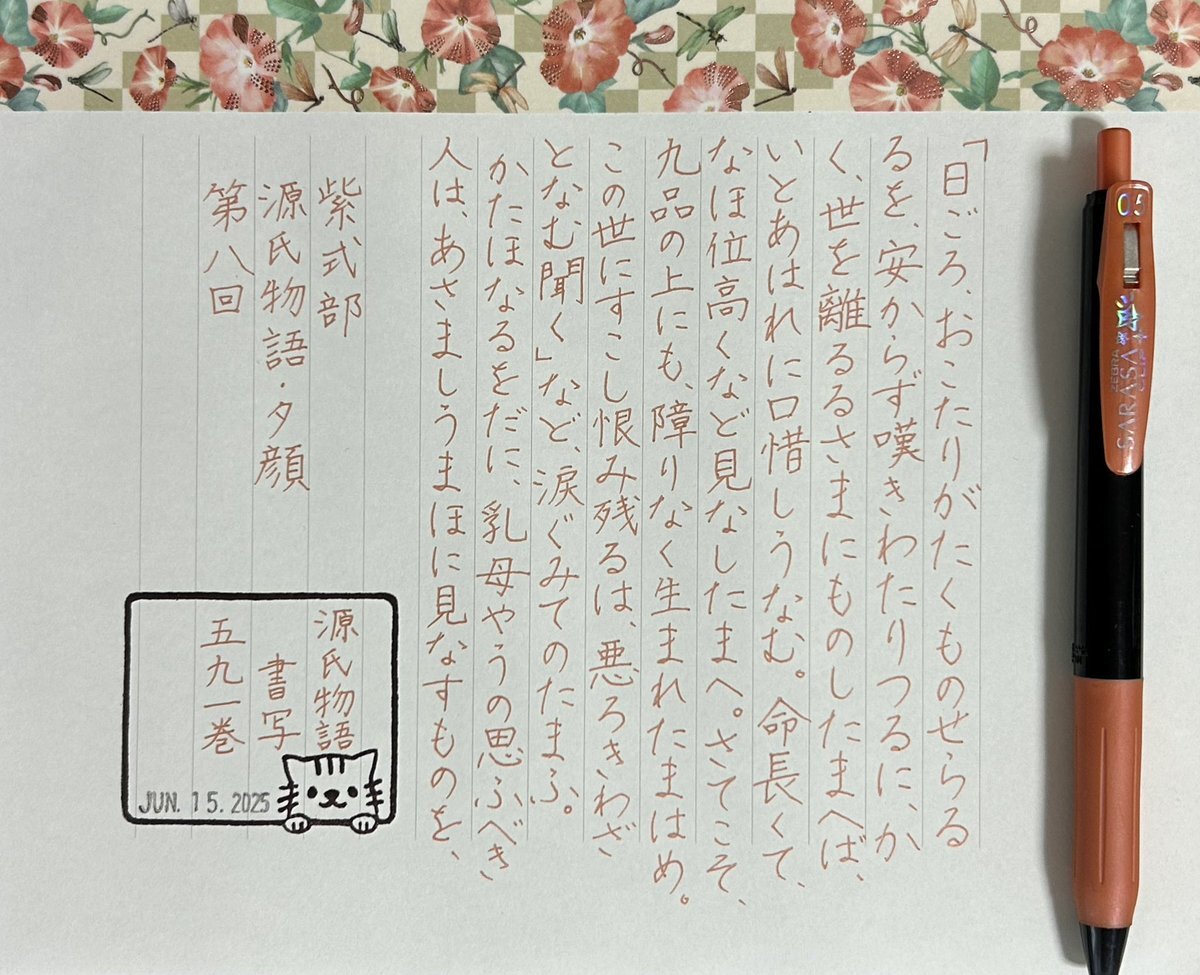 「日ごろ、おこたりがたくものせらる
るを、安からず嘆きわたりつるに、か
く、世を離るるさまにものしたまへば、
いとあはれに口惜しうなむ。命長くて、
なほ位高くなど見なしたまへ。さてこそ、
九品の上にも、障りなく生まれたまはめ。
この世にすこし恨み残るは、悪ろきわざ
となむ聞く」など、涙ぐみてのたまふ。
かたほなるをだに、乳母やうの思ふべき
人は、あさましうまほに見なすものを、
紫式部
源氏物語・夕顔
第八回
源氏物語
書写
五九一巻
JUN. 15. 2025
05
ZEBRA
SARASA
CLIP